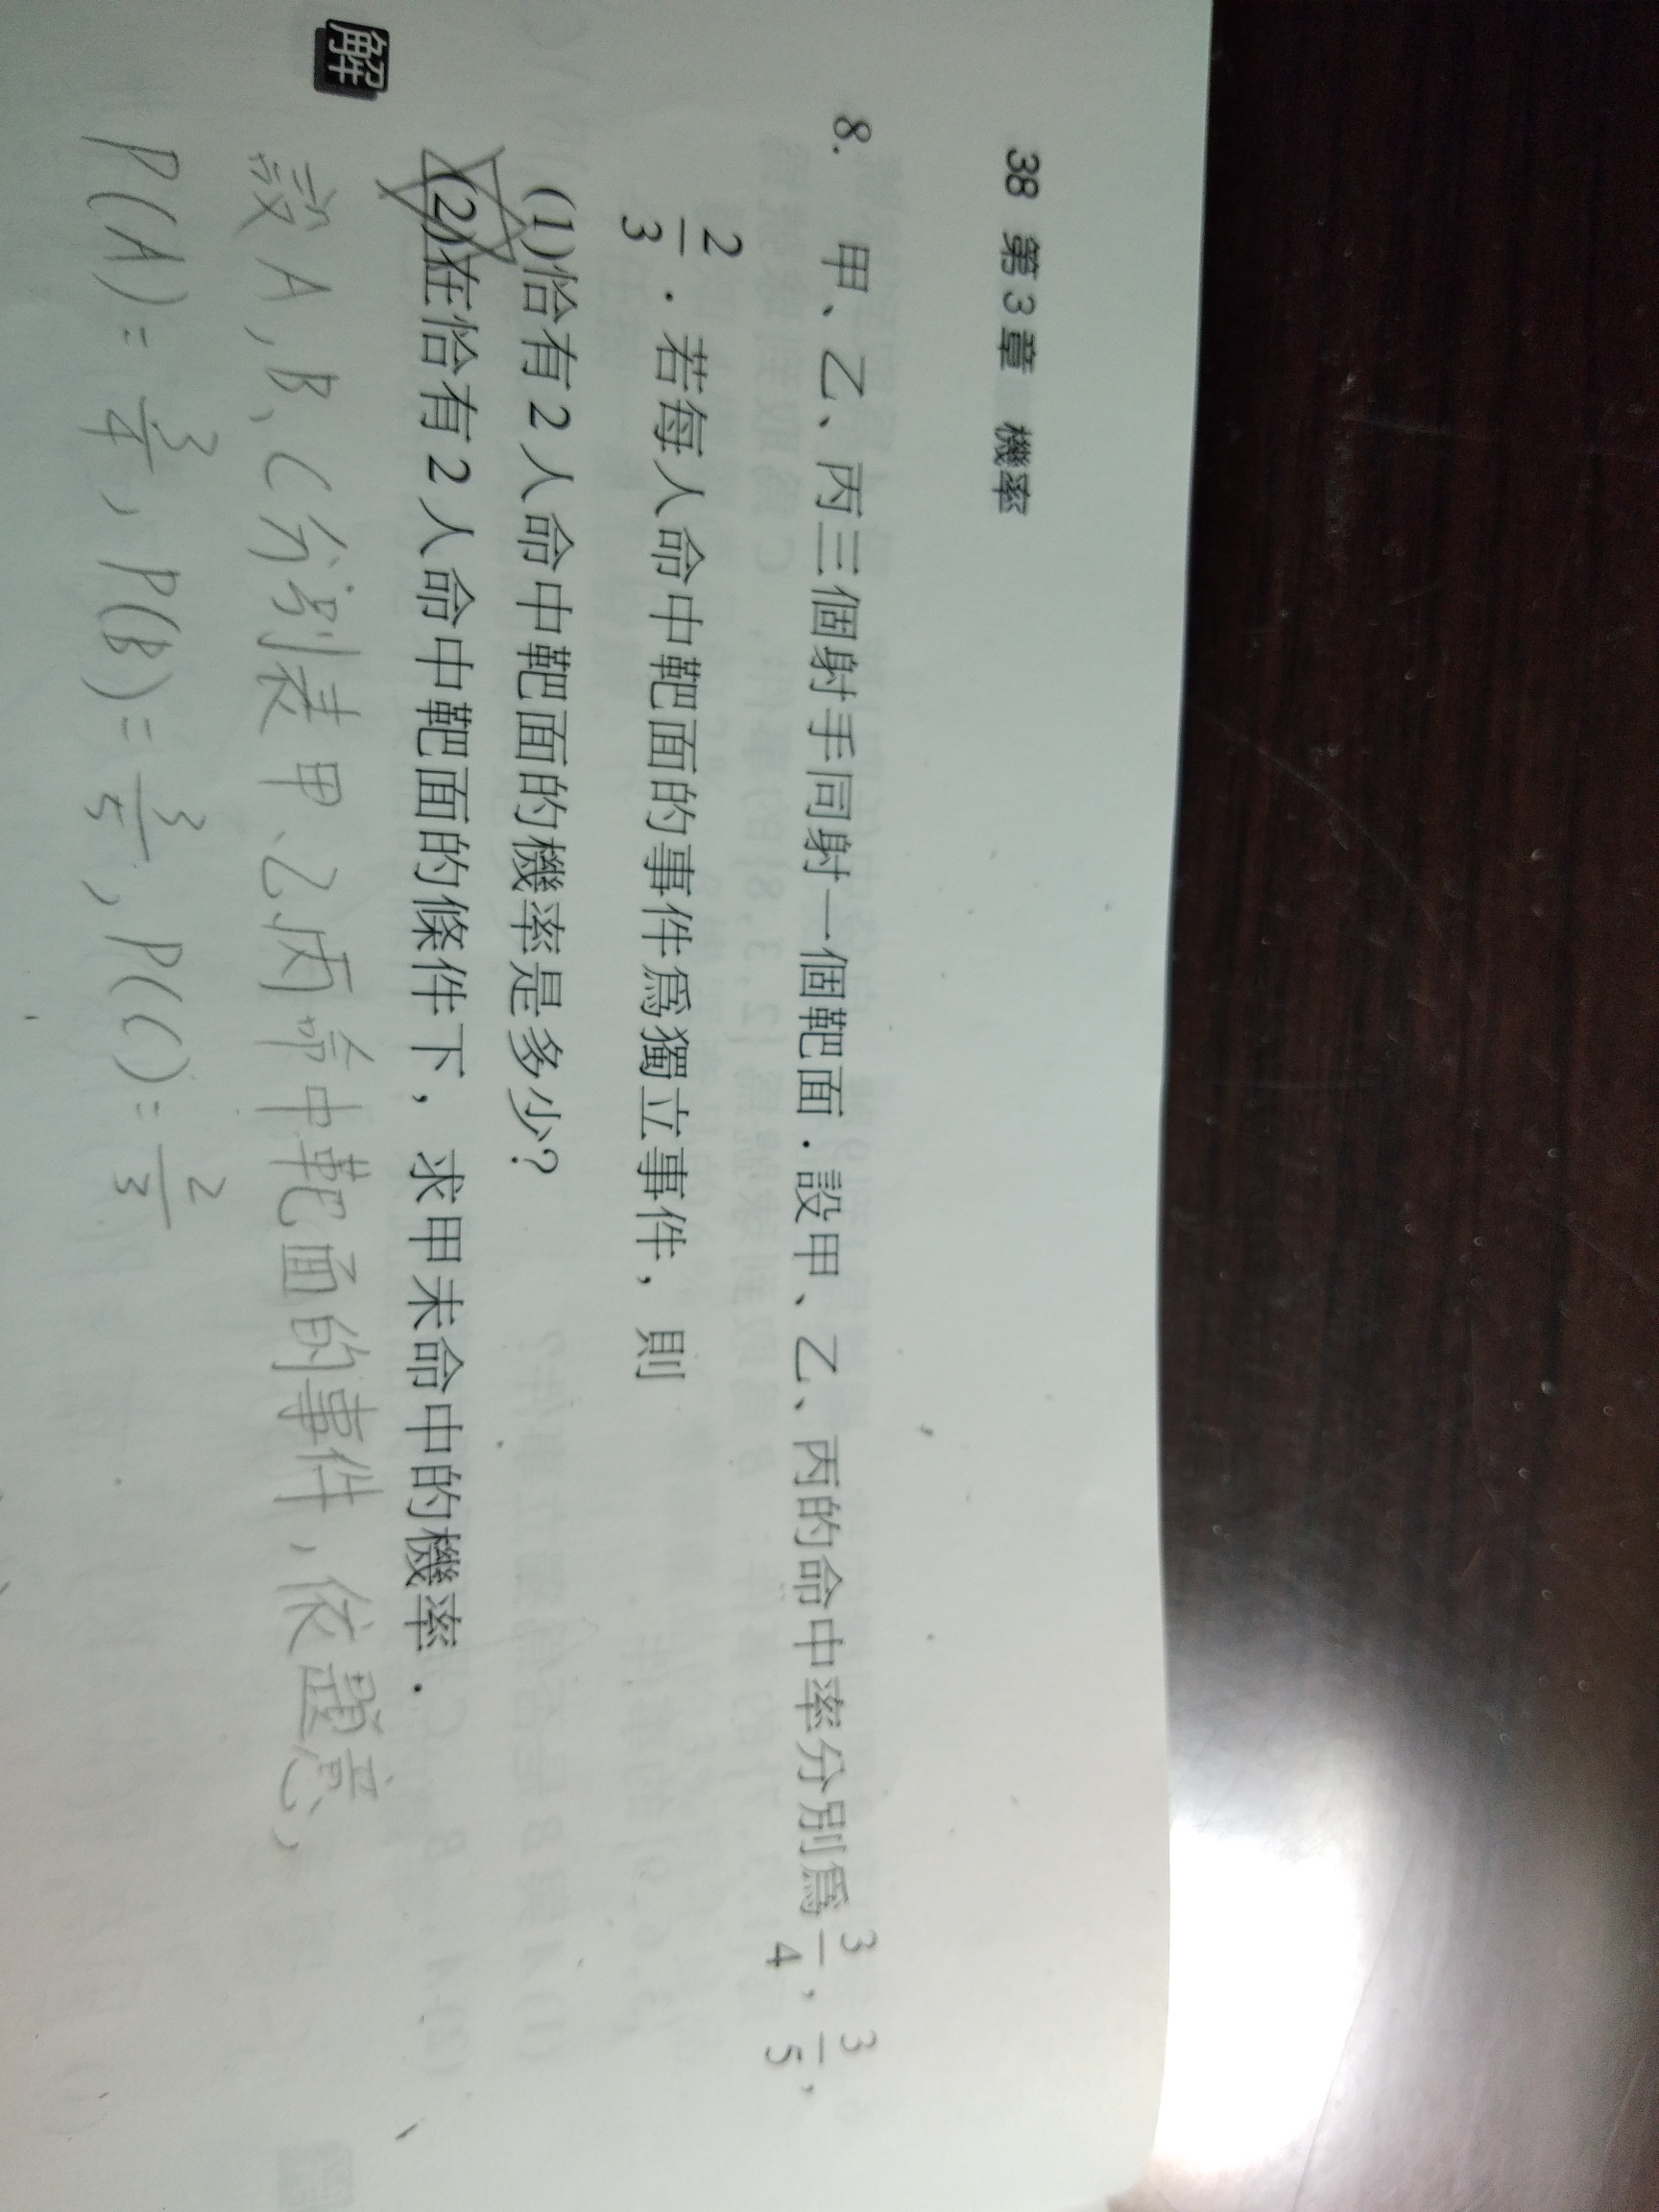 38 第 3 章 機率
8. 甲、乙、丙三個射手同射一個靶面．設甲、乙、丙的命中率分別爲 3/4，3/5，
2/3．若每人命中靶面的事件爲獨立事件，則
(1)恰有 2 人命中靶面的機率是多少？
(2)在恰有 2 人命中靶面的條件下，求甲未命中的機率．
解
設 A，B、C分別表甲、乙丙命中靶面的事件，依題意，
P(A)=3/4，P(B)=3/5，P(C)=2/3